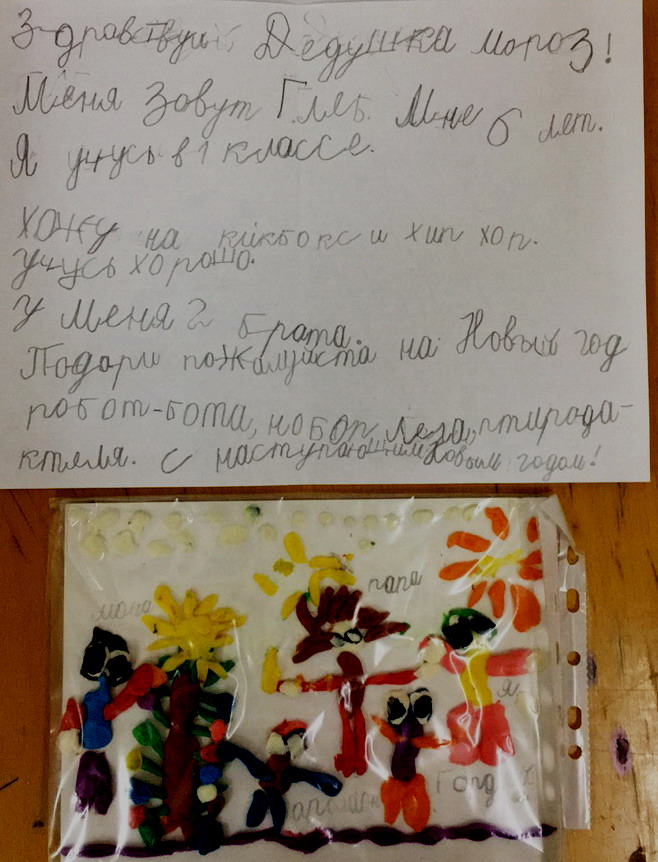 Здравствуй Дедушка мороз!
Меня Зовут Глеб. Мне 6 лет.
Я учусь в 1 классе.
хожу на кикбокс и хип хоп.
учусь хорошо.
У меня 2 брата.
Подари пожалуйста на Новый год
робот-бота, нобор Лего, птирода-
ктеля. С наступающим Новым годом!
мама
папа
я